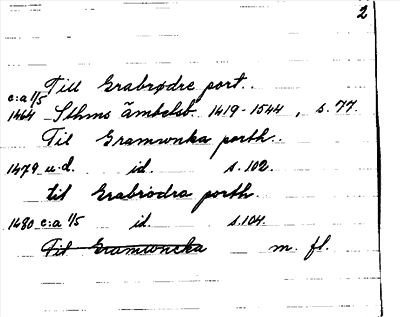 2
Till Grabrødre port.
c:a 1/5
1464 Sthms ämbetsb. 1419-1544, s. 77.
Til Gramwnka porth.
1479 u.d. id. s. 102.
til Grabrodra porth.
1480 c:a 1/5 id. s. 104.
Til Gramwncka m. fl.